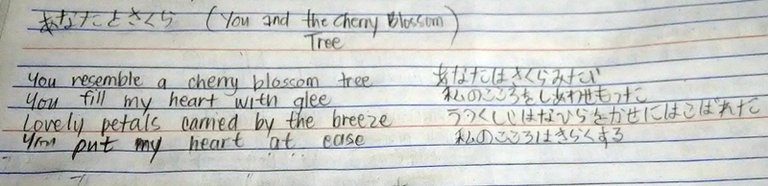 あなたとさくら (You and the Cherry Blossom Tree)
You resemble a cherry blossom tree あなたはさくらみたい
You fill my heart with glee 私のこころをしあわせもった
Lovely petals carried by the breeze うつくしじはなびらをかぜにはこばれた
You put my heart at ease 私のこころはきらくする